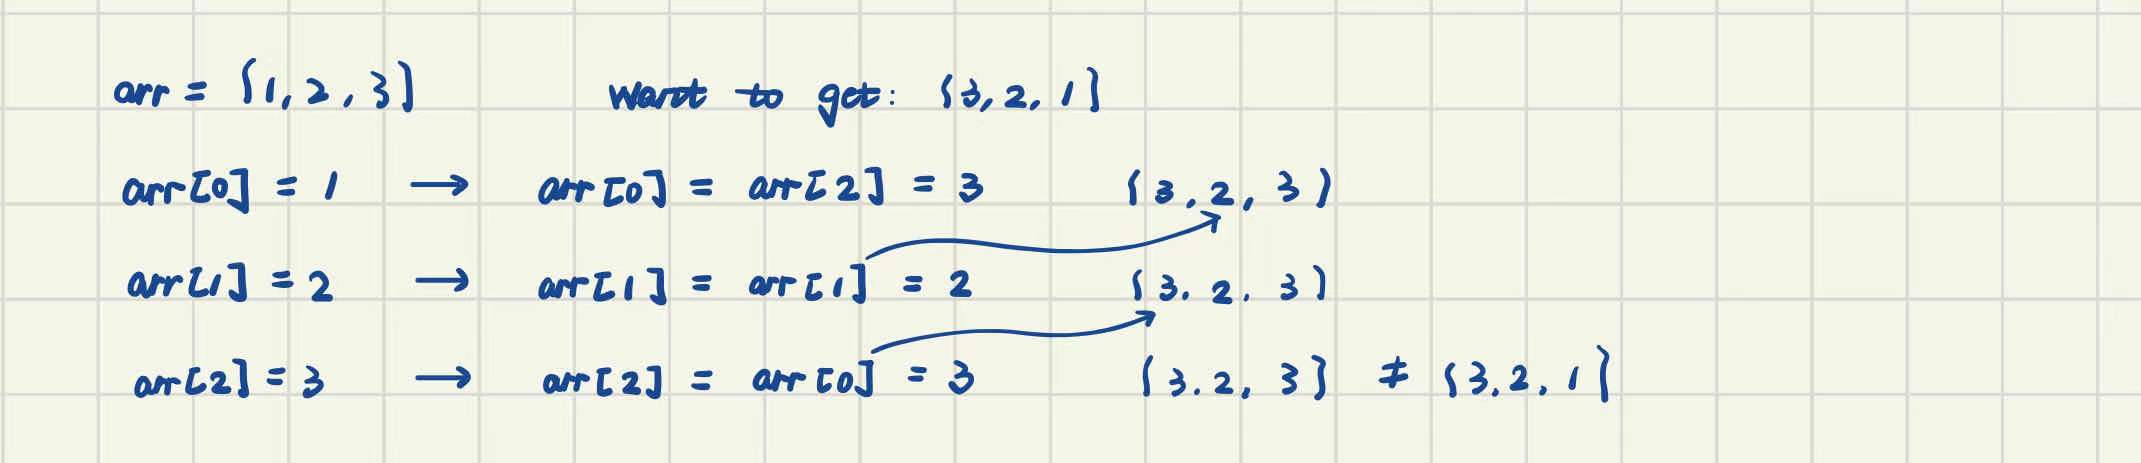 arr = {1, 2, 3} want to get: {3, 2, 1}
arr[0] = 1 → arr[0] = arr[2] = 3 {3, 2, 3}
arr[1] = 2 → arr[1] = arr[1] = 2 {3. 2. 3}
arr[2] = 3 → arr[2] = arr[0] = 3 {3. 2, 3} ≠ {3. 2, 1}